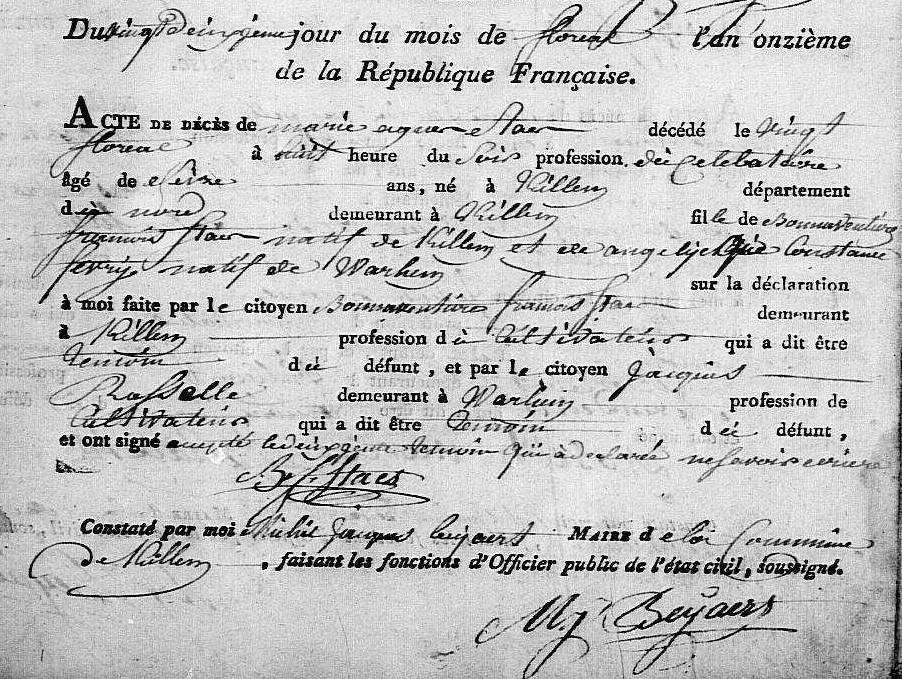 Du vingt deuxieme jour du mois de floreal l'an onzième
de la République Française.
ACTE DE DÉCÈS de marie agnes Staes décédé le vingt
floreal à huit heure du Soir profession de Celebataire
âgé de Seize ans, né à Killem département
du nord demeurant à Killem fille de Bonnaventure
francois Staes natif de Killem et de angelique Constance
ferrÿn natif de Warhem sur la déclaration
à moi faite par le citoyen Bonnaventure francois Staes demeurant
à Killem profession de Cultivateur qui a dit être
temoin du défunt, et par le citoyen Jacques
Rosselle demeurant à Warhem profession de
Cultivateur qui a dit être temoin du défunt,
et ont signé acepté le deuxieme temoin qui a declarée ne savoir ecriere
B. f. Staes
Constaté par moi Michel Jacques beÿaert MAIRE de la Commune
de Killem, faisant les fonctions d'Officier public de l'état civil, soussigné.
M. j. Beÿaert